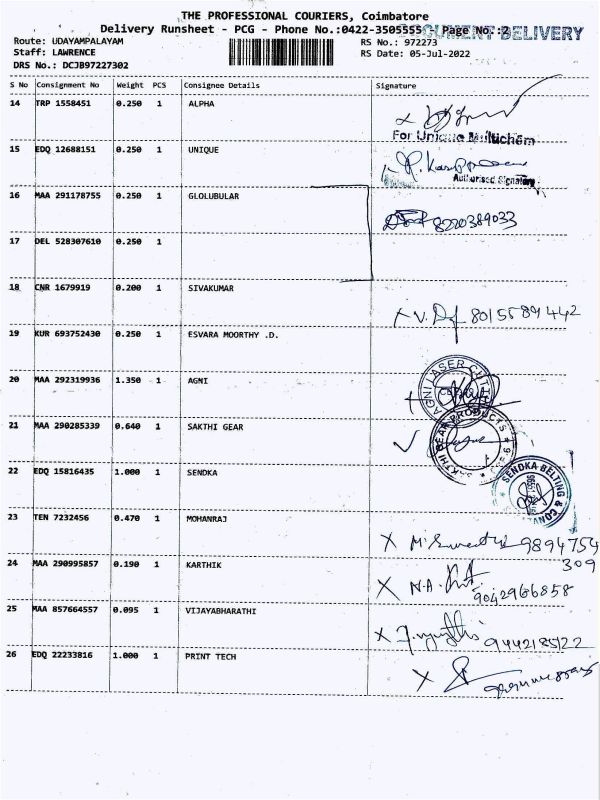 THE PROFESSIONAL COURIERS, Coimbatore
Delivery Runsheet - PCG - Phone No.:0422-3505555 Page No.:2
DOCUMENT DELIVERY
Route: UDAYAMPALAYAM RS No.: 972273
Staff: LAWRENCE RS Date: 05-Jul-2022
DRS No.: DCJB97227302
S No Consignment No Weight PCS Consignee Details Signature
14 TRP 1558451 0.250 1 ALPHA
For Unique Multichem
15 EDQ 12688151 0.250 1 UNIQUE
Authorised Signatory
16 MAA 291178755 0.250 1 GLOLUBULAR
8220389033
17 DEL 528307610 0.250 1
18 CNR 1679919 0.200 1 SIVAKUMAR
X V. 8015589442
19 KUR 693752430 0.250 1 ESVARA MOORTHY .D.
20 MAA 292319936 1.350 1 AGNI
AGNI LASER
21 MAA 290285339 0.640 1 SAKTHI GEAR
SAKTHI GEAR PRODUCTS
22 EDQ 15816435 1.000 1 SENDKA
SENDKA BELTING &
23 TEN 7232456 0.470 1 MOHANRAJ
X 9894754
309
24 MAA 290995857 0.190 1 KARTHIK
X N.A. 9042966858
25 MAA 857664557 0.095 1 VIJAYABHARATHI
X 9442185122
26 EDQ 22233816 1.000 1 PRINT TECH
X